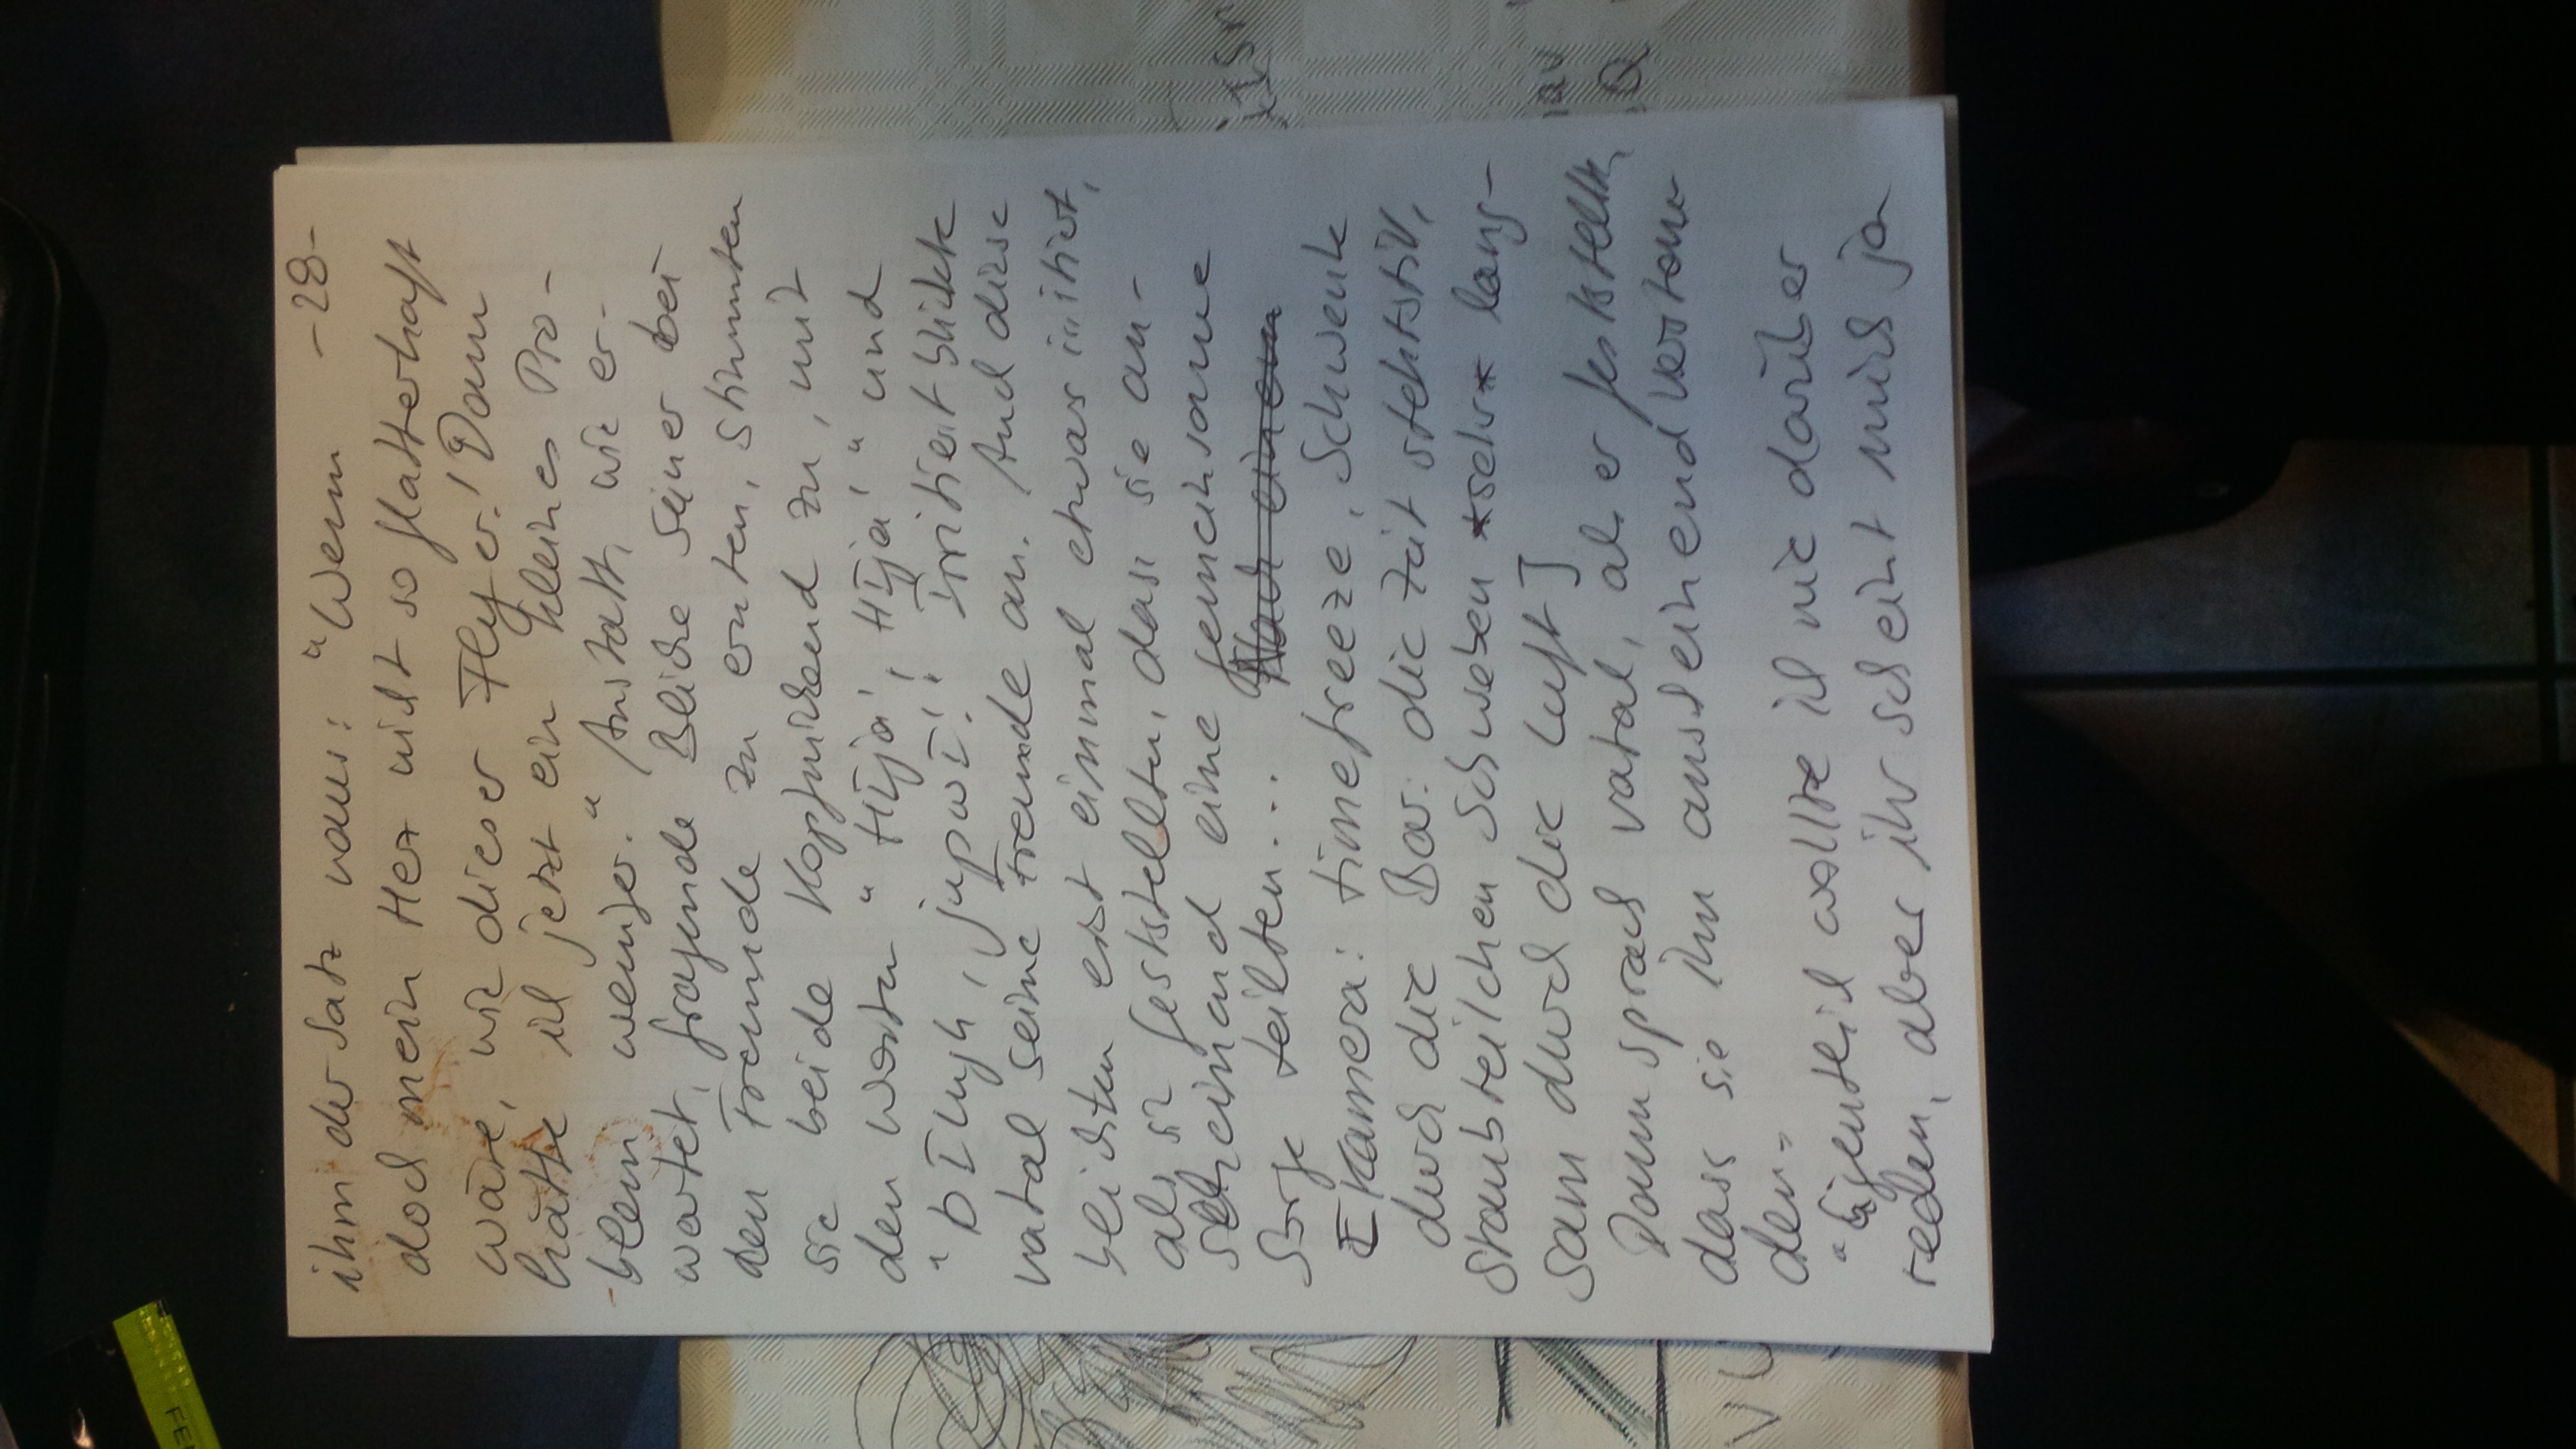 -28-
ihm der Satz raus: "Wenn
doch mein Herz nicht so flatterhaft
wäre, wie dieser Flyer! Dann
hätte ich jetzt ein kleines Pro-
blem weniger." Anstatt, wie er-
wartet, fragende Blicke seiner bei-
den Freunde zu ernten, stimmten
sie beide kopfnickend zu, mit
den Worten "Hüja! Hüja!" und
jupwi!! Irritiert blickte
seine Freunde an. Und diese
blickten erst einmal etwas irritiert,
als sie feststellten, dass sie an-
scheinend eine gemeinsame
Sorge teilten...
[Kamera: timefreeze, Schwenk
durch die Bar: die Zeit steht still,
Staubteilchen schweben *sehr* lang-
sam durch die Luft]
Dann sprach vatal, als er feststellte,
dass sie ihn anscheinend verston-
den:
"Eigentlich wollte ich nie darüber
reden, aber ihr scheint mich ja